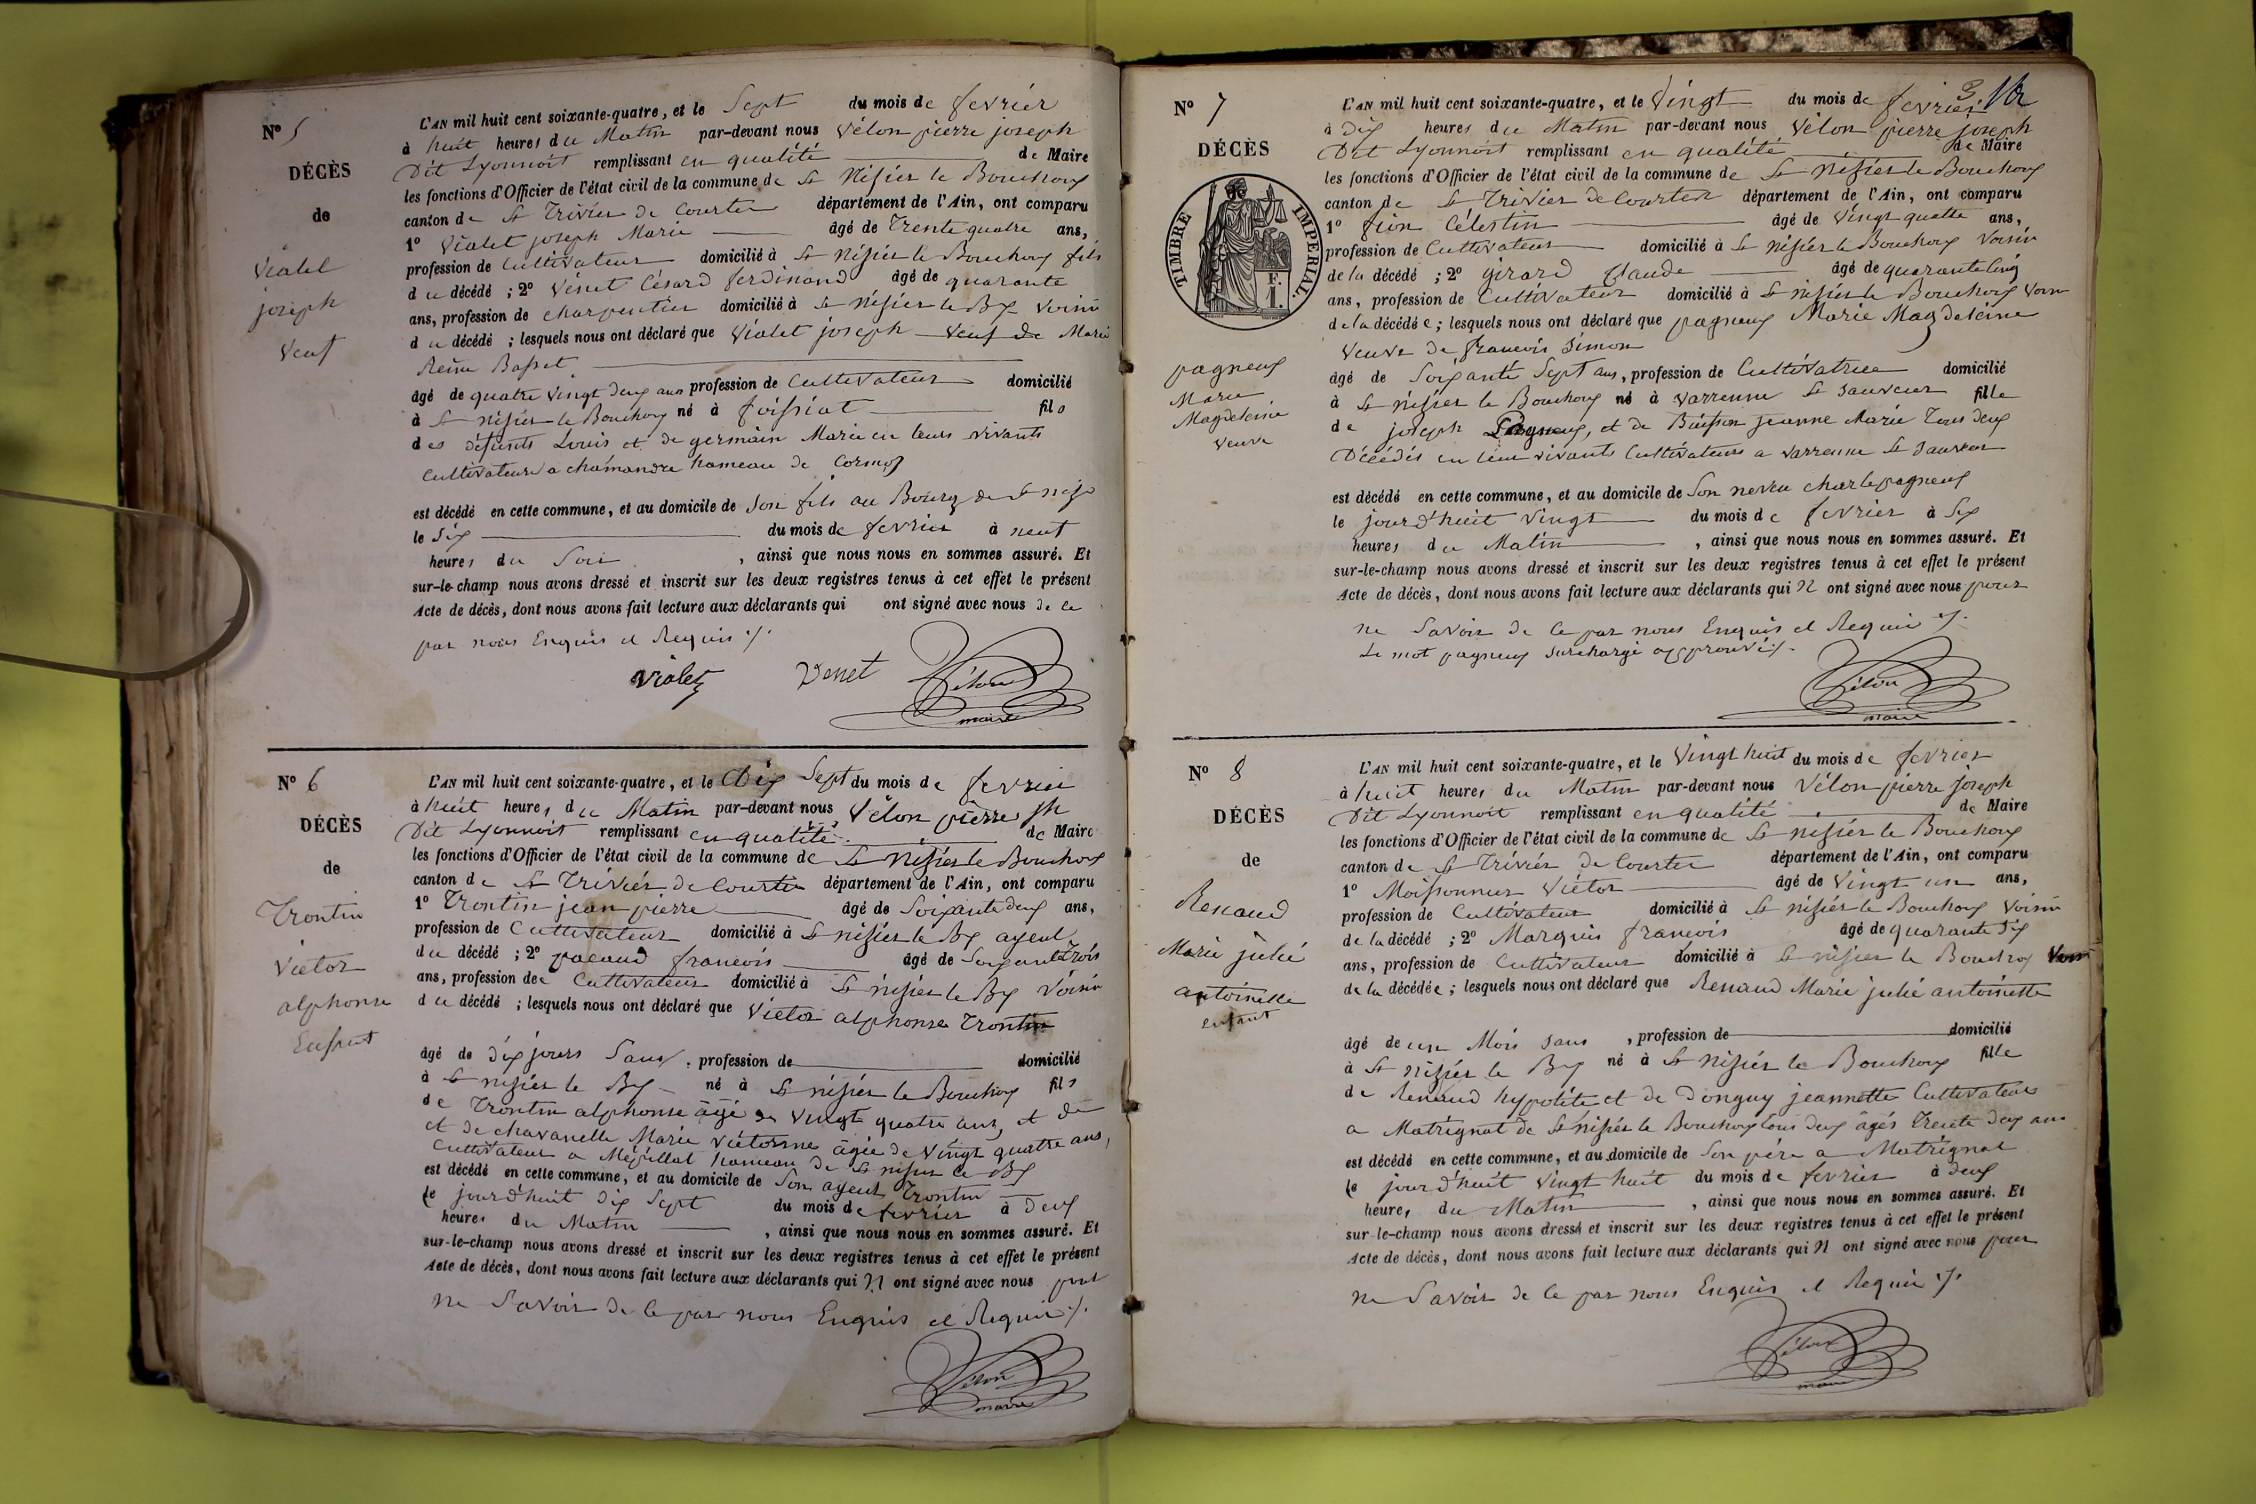 N° 5
DÉCÈS
de
Vialet
joseph
Veuf
L'AN mil huit cent soixante-quatre, et le Sept du mois de fevrier
à huit heures du Matin par-devant nous Vélon pierre joseph
Dit Lyonnoit remplissant en qualité de Maire
les fonctions d'Officier de l'état civil de la commune de St Nisier le Bouchoux
canton de St Trivier de Courtes département de l'Ain, ont comparu
1° Vialet joseph Marie âgé de Trente quatre ans,
profession de Cultivateur domicilié à St Nisier le Bouchoux fils
du décédé ; 2° Vénet Césard ferdinand âgé de quarante
ans, profession de charpentier domicilié à St Nisier le Bx Voisin
du décédé ; lesquels nous ont déclaré que Vialet joseph Veuf de Marie
Reine Basset
âgé de quatre vingt deux ans profession de Cultivateur domicilié
à St Nisier le Bouchoux né à foissiat fils
des défunts Louis et de germain Marie en leurs vivants
Cultivateurs a chamandre hameau de Cormoz
est décédé en cette commune, et au domicile de Son fils au Bourg de St
le Six du mois de fevrier à neuf
heures du Soir , ainsi que nous nous en sommes assuré. Et
sur-le-champ nous avons dressé et inscrit sur les deux registres tenus à cet effet le présent
Acte de décès, dont nous avons fait lecture aux déclarants qui ont signé avec nous de ce
par nous Enquis et Requis ./.
Vialet Venet Vélon
maire
N° 6
DÉCÈS
de
Trontin
Victor
alphonse
Enfant
L'AN mil huit cent soixante-quatre, et le Dix Sept du mois de fevrier
à huit heures du Matin par-devant nous Vélon pierre jh
Dit Lyonnoit remplissant en qualité de Maire
les fonctions d'Officier de l'état civil de la commune de St Nisier le Bouchoux
canton de St Trivier de Courtes département de l'Ain, ont comparu
1° Trontin jean pierre âgé de Soixante deux ans,
profession de Cultivateur domicilié à St nisier le Bx ayeul
du décédé ; 2° pacaud francois âgé de Soixante Trois
ans, profession de Cultivateur domicilié à St nisier le Bx Voisin
du décédé ; lesquels nous ont déclaré que Victor alphonse Trontin
âgé de dix jours Sans , profession de domicilié
à St nisier le Bx né à St nisier le Bouchoux fils
de Trontin alphonse âgé de Vingt quatre ans, et de
et de chavanelle Marie Victorine âgée de Vingt quatre ans,
Cultivateur a Mépillat hameau de St nisier le Bx
est décédé en cette commune, et au domicile de Son ayeul Trontin
le jourd'huit dix Sept du mois de fevrier à Deux
heures du Matin , ainsi que nous nous en sommes assuré. Et
sur-le-champ nous avons dressé et inscrit sur les deux registres tenus à cet effet le présent
Acte de décès, dont nous avons fait lecture aux déclarants qui N ont signé avec nous pour
ne Savoir de ce par nous Enquis et Requis ./.
Vélon
maire
N° 7
DÉCÈS
TIMBRE IMPERIAL.
F.
1.
pagneux
Marie
Magdeleine
Veuve
3
L'AN mil huit cent soixante-quatre, et le Vingt du mois de fevrier
à Dix heures du Matin par-devant nous Vélon pierre joseph
Dit Lyonnoit remplissant en qualité de Maire
les fonctions d'Officier de l'état civil de la commune de St Nisier le Bouchoux
canton de St Trivier de Courtes département de l'Ain, ont comparu
1° fion Célestin âgé de Vingt quatre ans,
profession de Cultivateur domicilié à St nisier le Bouchoux Voisin
de la décédé ; 2° girard claude âgé de quarante cinq
ans, profession de Cultivateur domicilié à St nisier le Bouchoux Voisin
de la décédée ; lesquels nous ont déclaré que pagneux Marie Magdeleine
Veuve de francois Simon
âgé de Soixante Sept ans, profession de Cultivatrice domicilié
à St nisier le Bouchoux né à Varrenne St Sauveur fille
de joseph Pagneux, et de Buisson jeanne Marie Tous deux
Décédés en leur vivants Cultivateurs a Varrenne St Sauveur
est décédé en cette commune, et au domicile de Son neveu charle pagneux
le jourd'huit Vingt du mois de fevrier à Six
heures du Matin , ainsi que nous nous en sommes assuré. Et
sur-le-champ nous avons dressé et inscrit sur les deux registres tenus à cet effet le présent
Acte de décès, dont nous avons fait lecture aux déclarants qui N ont signé avec nous pour
ne Savoir de ce par nous Enquis et Requis ./.
Le mot pagneux surchargé approuvé ./.
Vélon
maire
N° 8
DÉCÈS
de
Renaud
Marie julie
antoinette
Enfant
L'AN mil huit cent soixante-quatre, et le Vingt huit du mois de fevrier
à huit heures du Matin par-devant nous Vélon pierre joseph
Dit Lyonnoit remplissant en qualité de Maire
les fonctions d'Officier de l'état civil de la commune de St nisier le Bouchoux
canton de St Trivier de Courtes département de l'Ain, ont comparu
1° Moissonnier Victor âgé de Vingt un ans,
profession de Cultivateur domicilié à St nisier le Bouchoux Voisin
de la décédé ; 2° Marquis francois âgé de quarante Six
ans, profession de Cultivateur domicilié à St nisier le Bouchoux Voisin
de la décédée ; lesquels nous ont déclaré que Renaud Marie julie antoinette
âgé de un Mois sans , profession de domicilié
à St nisier le Bx né à St Nisier le Bouchoux fille
de Renaud hypolite et de Donguy jeannette Cultivateurs
a Matrignat de St nisier le Bouchoux tous deux âgés Trente deux ans
est décédé en cette commune, et au domicile de Son père a Matrignat
le jourd'huit Vingt huit du mois de fevrier à deux
heures du Matin , ainsi que nous nous en sommes assuré. Et
sur-le-champ nous avons dressé et inscrit sur les deux registres tenus à cet effet le présent
Acte de décès, dont nous avons fait lecture aux déclarants qui N ont signé avec nous pour
ne Savoir de ce par nous Enquis et Requis ./.
Vélon
maire